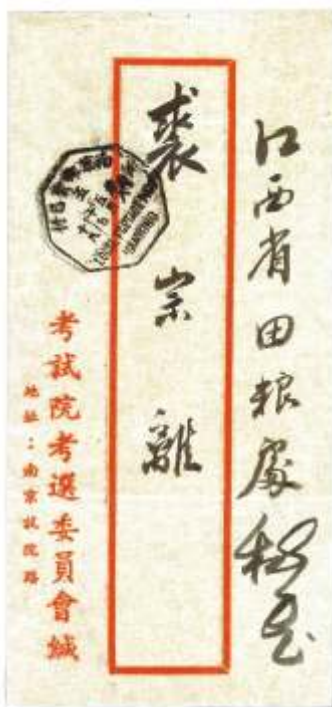 江西省田粮處
裘宗離
考試院考選委員會緘
地址：南京試院路